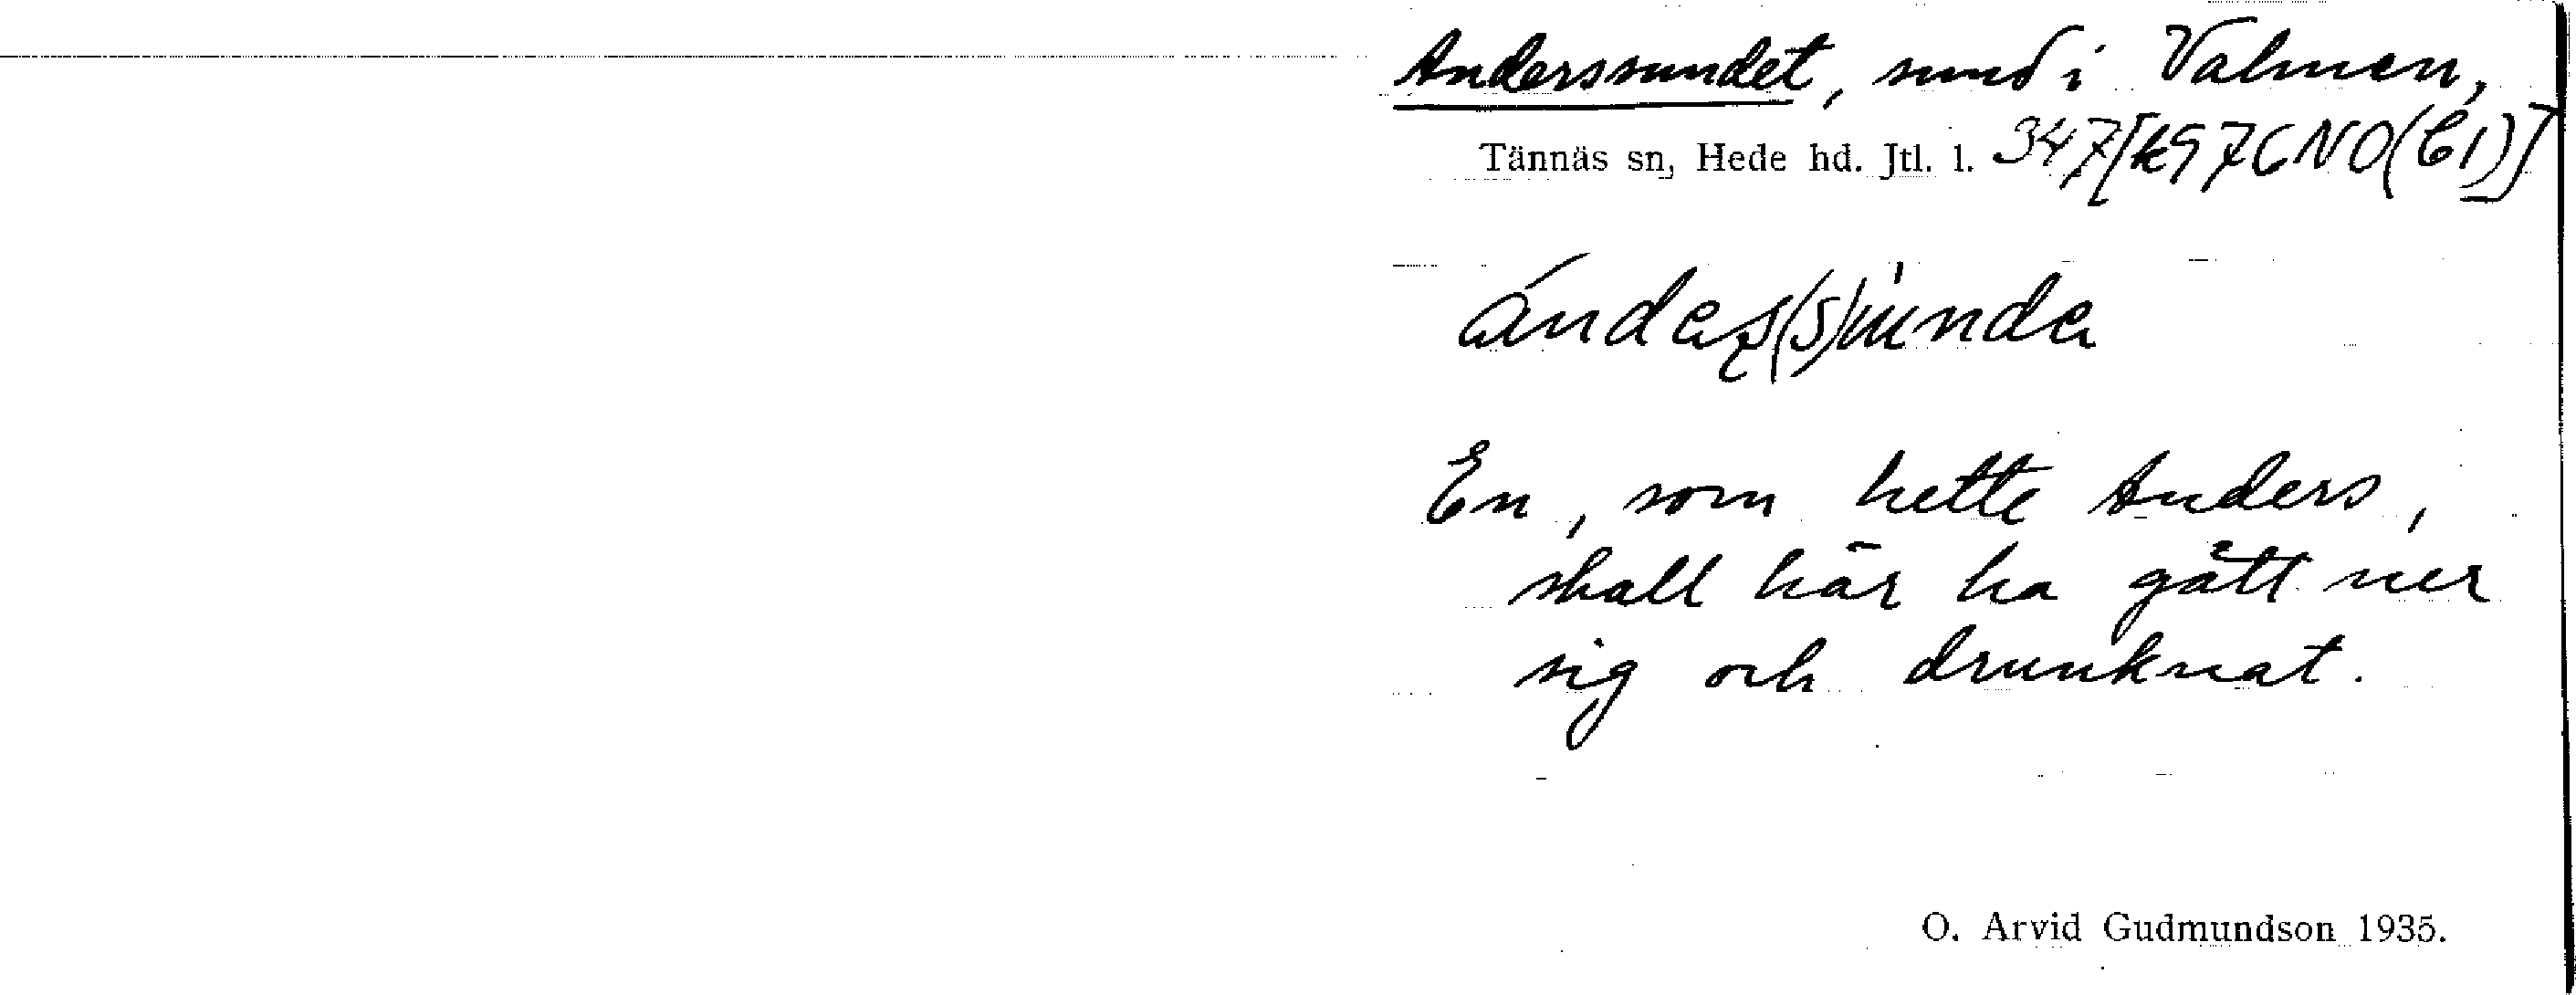 Anderssundet, sund i Valmen,
Tännäs sn, Hede hd. Jtl. l. 347[k976NO(61)]
En, som hette Anders,
skall här ha gått ner
sig och drunknat.
O. Arvid Gudmundson 1935.